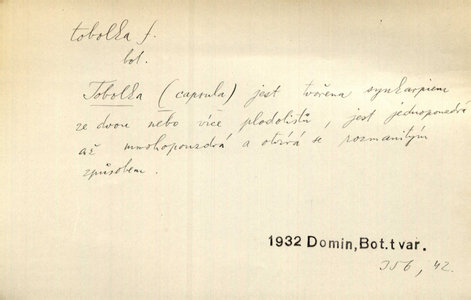 tobolka f.
bot.
Tobolka (capsula) jest tvořena synkarpiem
ze dvou nebo více plodolistů, jest jednopouzdrá
až mnohopouzdrá a otvírá se rozmanitým
způsobem.
1932 Domin, Bot. tvar.
356, 42.